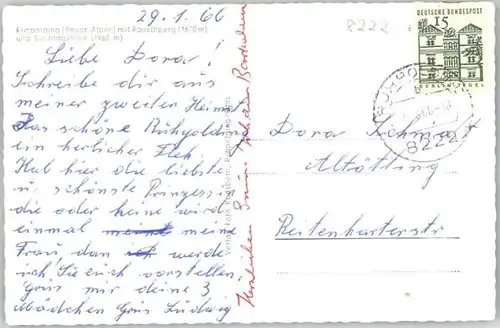 29.1.66
8222
Ruhpolding (Bayer. Alpen) mit Rauschberg (1670m)
und Sonntagshorn (1960 m)
DEUTSCHE BUNDESPOST
15
Liebe Dora!
Schreibe dir aus
meiner zweiten Heimat
Das schöne Ruhpolding
ein herlicher Fleck
Hab hier die liebste
u. schönste Prinzessin
die oder keine wird
einmal meine
Frau, dan werde
ich Sie euch vorstellen,
Grüs mir deine 3
Mädchen Grüs Ludwig
Herzlichen
Dora Schmidt
Altötting
Reitenharterstr
8222